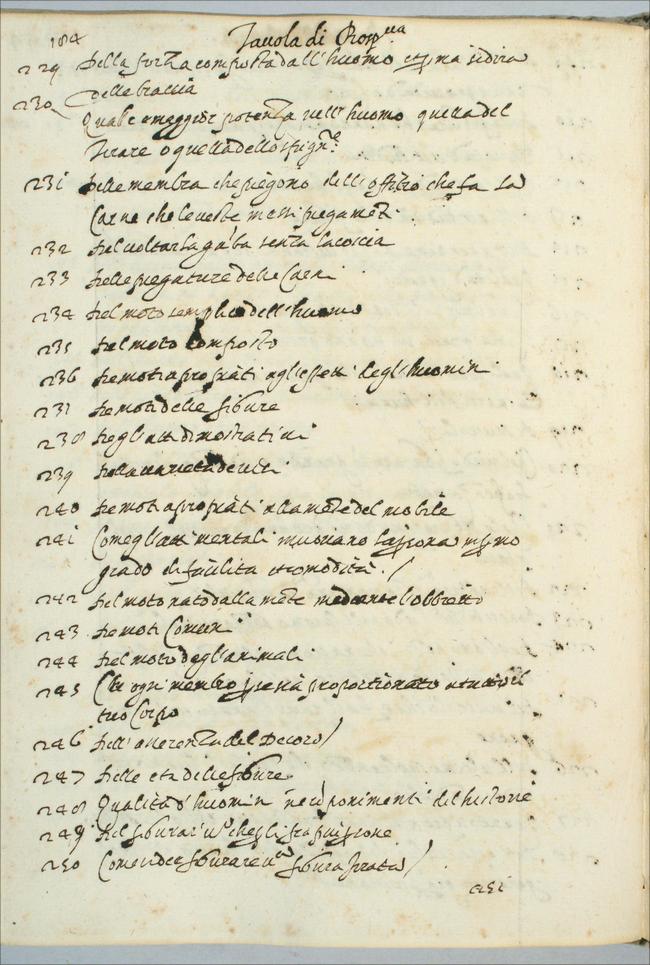 184
Tavola di Prosp.ua
229 Della forza composta dall'huomo et pma sidira
delle braccia
230 Qual'è maggior potenza nell'huomo quella del
Tirare o quella dello spigner
231 Delle membra che piegono dell'offitio che fa la
Carne che le veste ne
232 Del voltar la gaba senza la coscia
233 Delle piegature delle Carni
234 Del moto semplice dell'huomo
235 Del moto composto
236 De moti apropriati agli effetti degl'huomini
237 De moti delle figure
238 Degl'atti dimostrativi
239 Della varieta de visi
240 De moti apropriati alla mēte del mobile
241 Come gl'atti mentali muovano la psona in pmo
grado di facilita et comodità. /
242 Del moto nato dalla mēte mediante l'obbietto
243 De moti Comuni
244 Del moto degl'animali
245 Ch'ogni membro p se sia proportionato a tutto il
suo Corpo
246 Dell'averenza del Decoro /
247 Delle età delle figure
248 Qualità d'huomini ne cōponimenti del historie
249 Del figurar' uno che parli fra più psone
250 Come si dee figurare una figura irata /
251